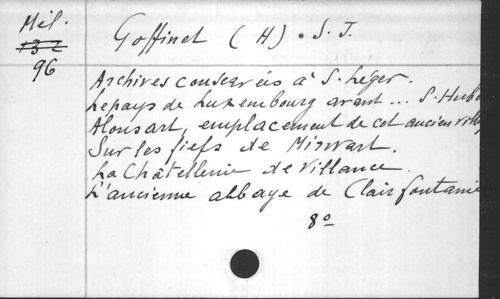 Mél.
132
96
Goffinet (H) . S. J.
Archives consacrées à S. Léger.
Le pays de Luxembourg avant ... S. Hub
Alonsart, emplacement de cet ancien vill
Sur les fiefs de Mirwart.
La Châtellenie de Villance.
L'ancienne abbaye de Clairfontaine
8º